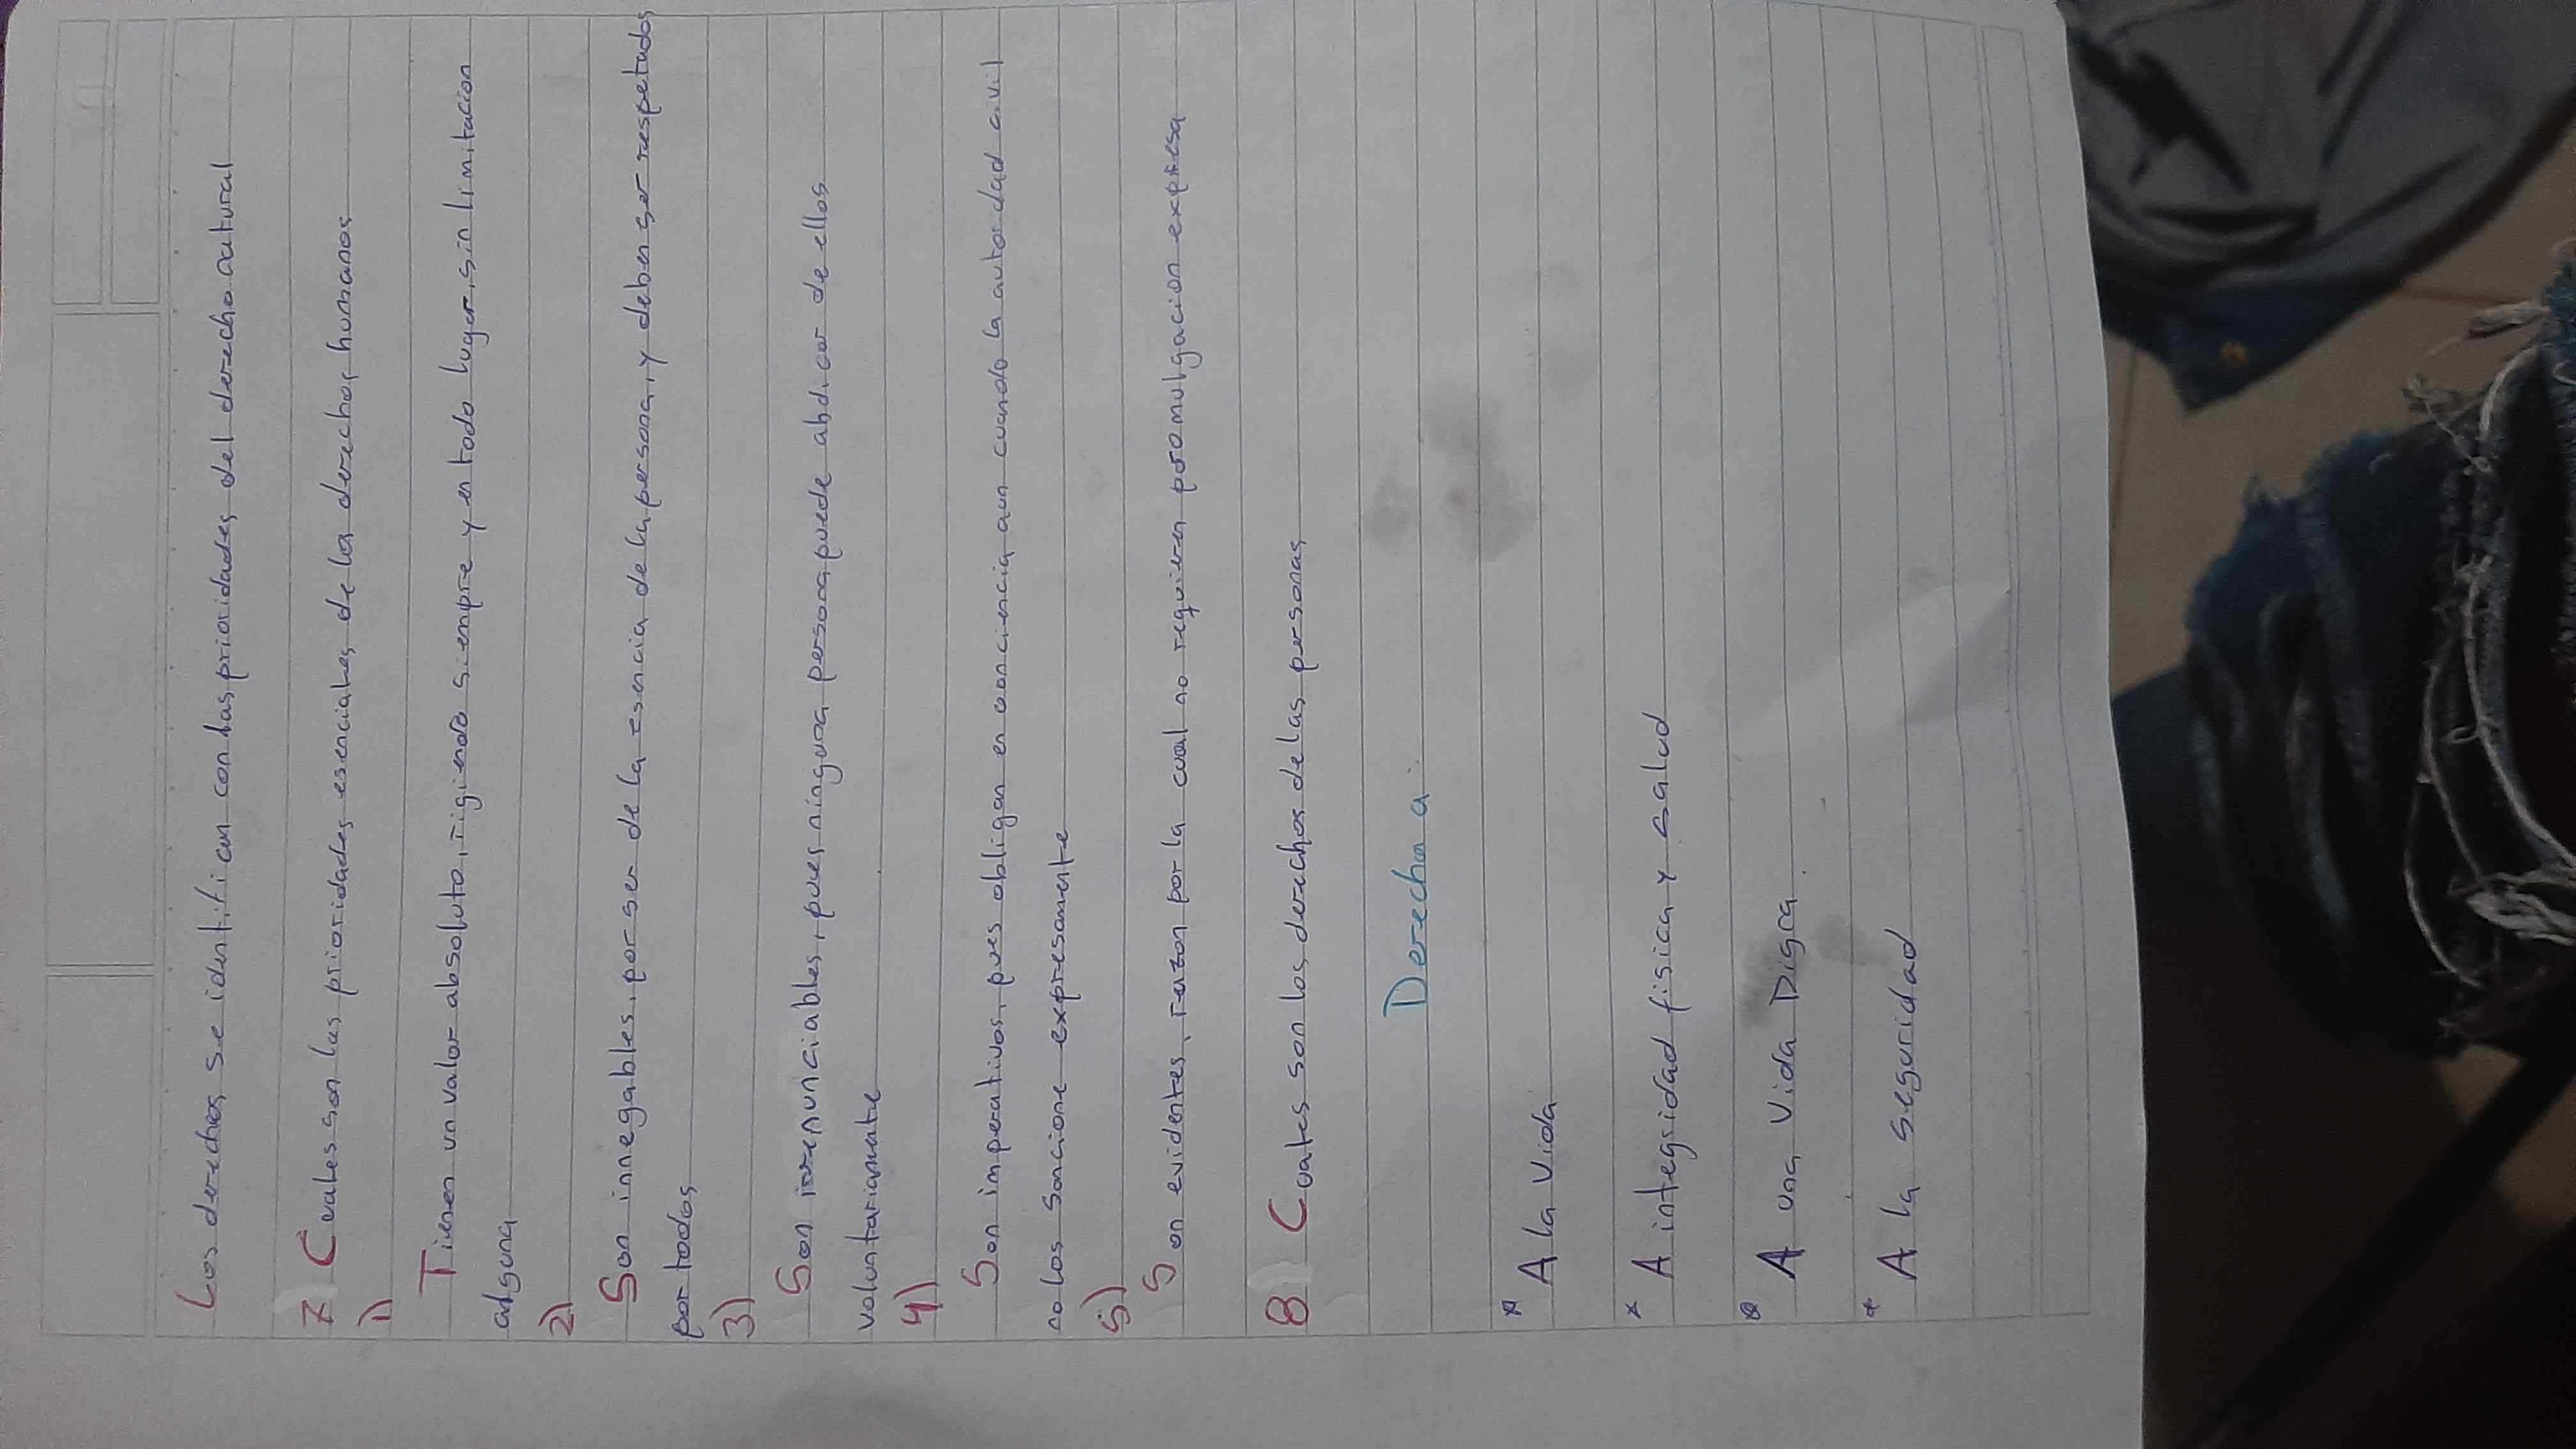 Los derechos se identifican con las prioridades del derecho natural
7 Cuales son las prioridades esenciales de la derechos humanos
1)
Tienen un valor absoluto, rigiendo siempre y en todo lugar, sin limitacion
alguna
2)
Son innegables, por ser de la esencia de la persona, y deben ser respetados
por todos
3)
Son irrenunciables, pues ninguna persona puede abdicar de ellos
voluntariamente
4)
Son imperativos, pues obligan en conciencia aun cuando la autoridad civil
no los sancione expresamente
5)
Son evidentes, razon por la cual no requieren promulgacion expresa
8 Cuales son los derechos de las personas
Derecho a:
* A la Vida
* A integridad fisica y salud
* A una Vida Digna
* A la seguridad